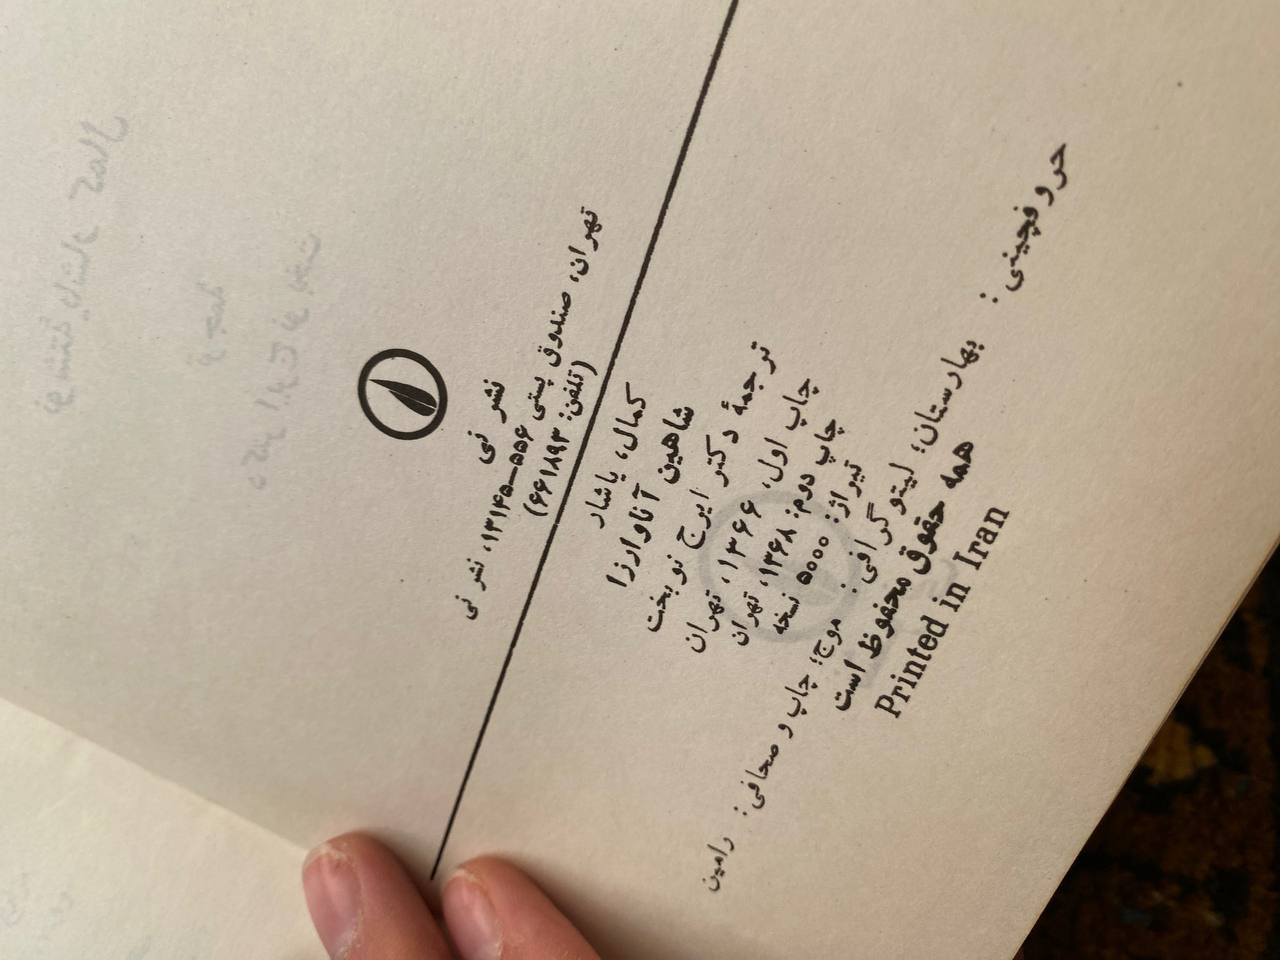 نشر نی
تهران، صندوق پستی ۵۵۶–۱۳۱۴۵، نشر نی
(تلفن: ۶۶۱۸۹۳)
کمال، یاشار
شاهین آناوارزا
ترجمهٔ دکتر ایرج نوبخت
چاپ اول، ۱۳۶۶، تهران
چاپ دوم: ۱۳۶۸، تهران
تیراژ: ۵۰۰۰ نسخه
حروفچینی: بهارستان؛ لیتوگرافی: موج؛ چاپ و صحافی: رامین
همه حقوق محفوظ است
Printed in Iran